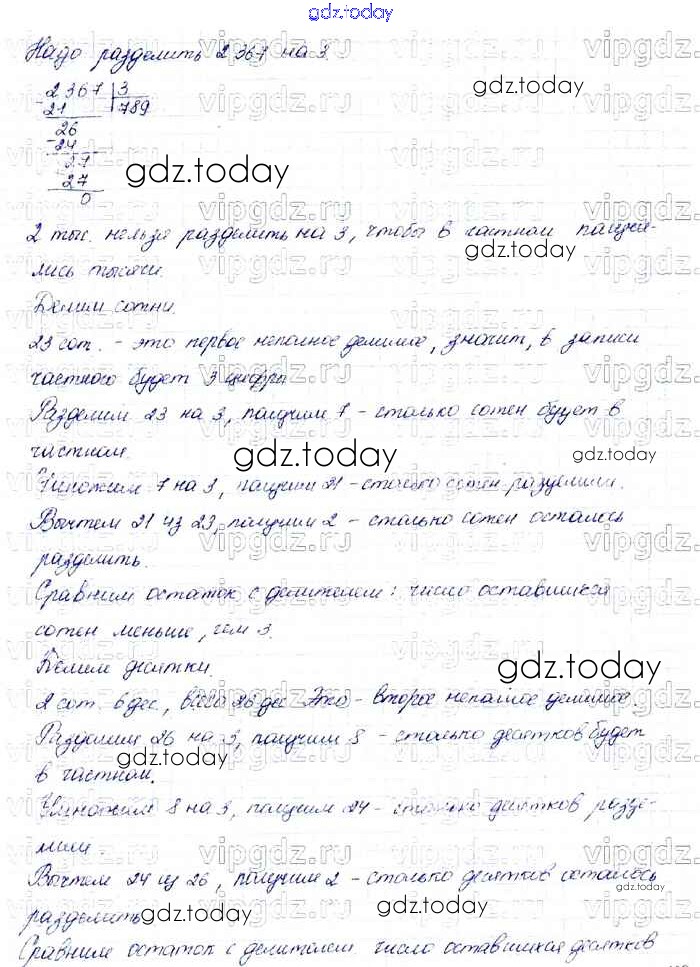 gdz.today
Надо разделить 2 367 на 3.
2367 3
21 789
26
24
27
27
0
2 тыс. нельзя разделить на 3, чтобы в частном получи-
лись тысячи.
Делим сотни.
23 сот. - это первое неполное делимое, значит, в записи
частного будет 3 цифры
Разделим 23 на 3, получим 7 - столько сотен будет в
частном.
Умножим 7 на 3, получим 21 - столько сотен разделили.
Вычтем 21 из 23, получим 2 - столько сотен осталось
разделить.
Сравним остаток с делителем: число оставшихся
сотен меньше, чем 3.
Делим десятки.
2 сот. 6 дес., всего 26 дес. Это - второе неполное делимое.
Разделим 26 на 3, получим 8 - столько десятков будет
в частном.
Умножим 8 на 3, получим 24 - столько десятков разде-
лили.
Вычтем 24 из 26, получим 2 - столько десятков осталось
разделить
Сравним остаток с делителем: число оставшихся десятков